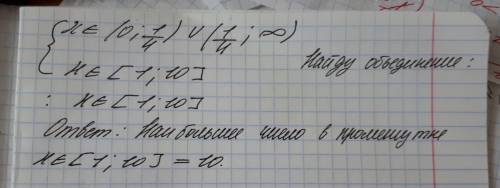 { x ∈ (0; 1/4) ∪ (1/4; ∞)
x ∈ [1; 10]
Найду объединение:
: x ∈ [1; 10]
Ответ: Наибольшее число в промежутке
x ∈ [1; 10] = 10.